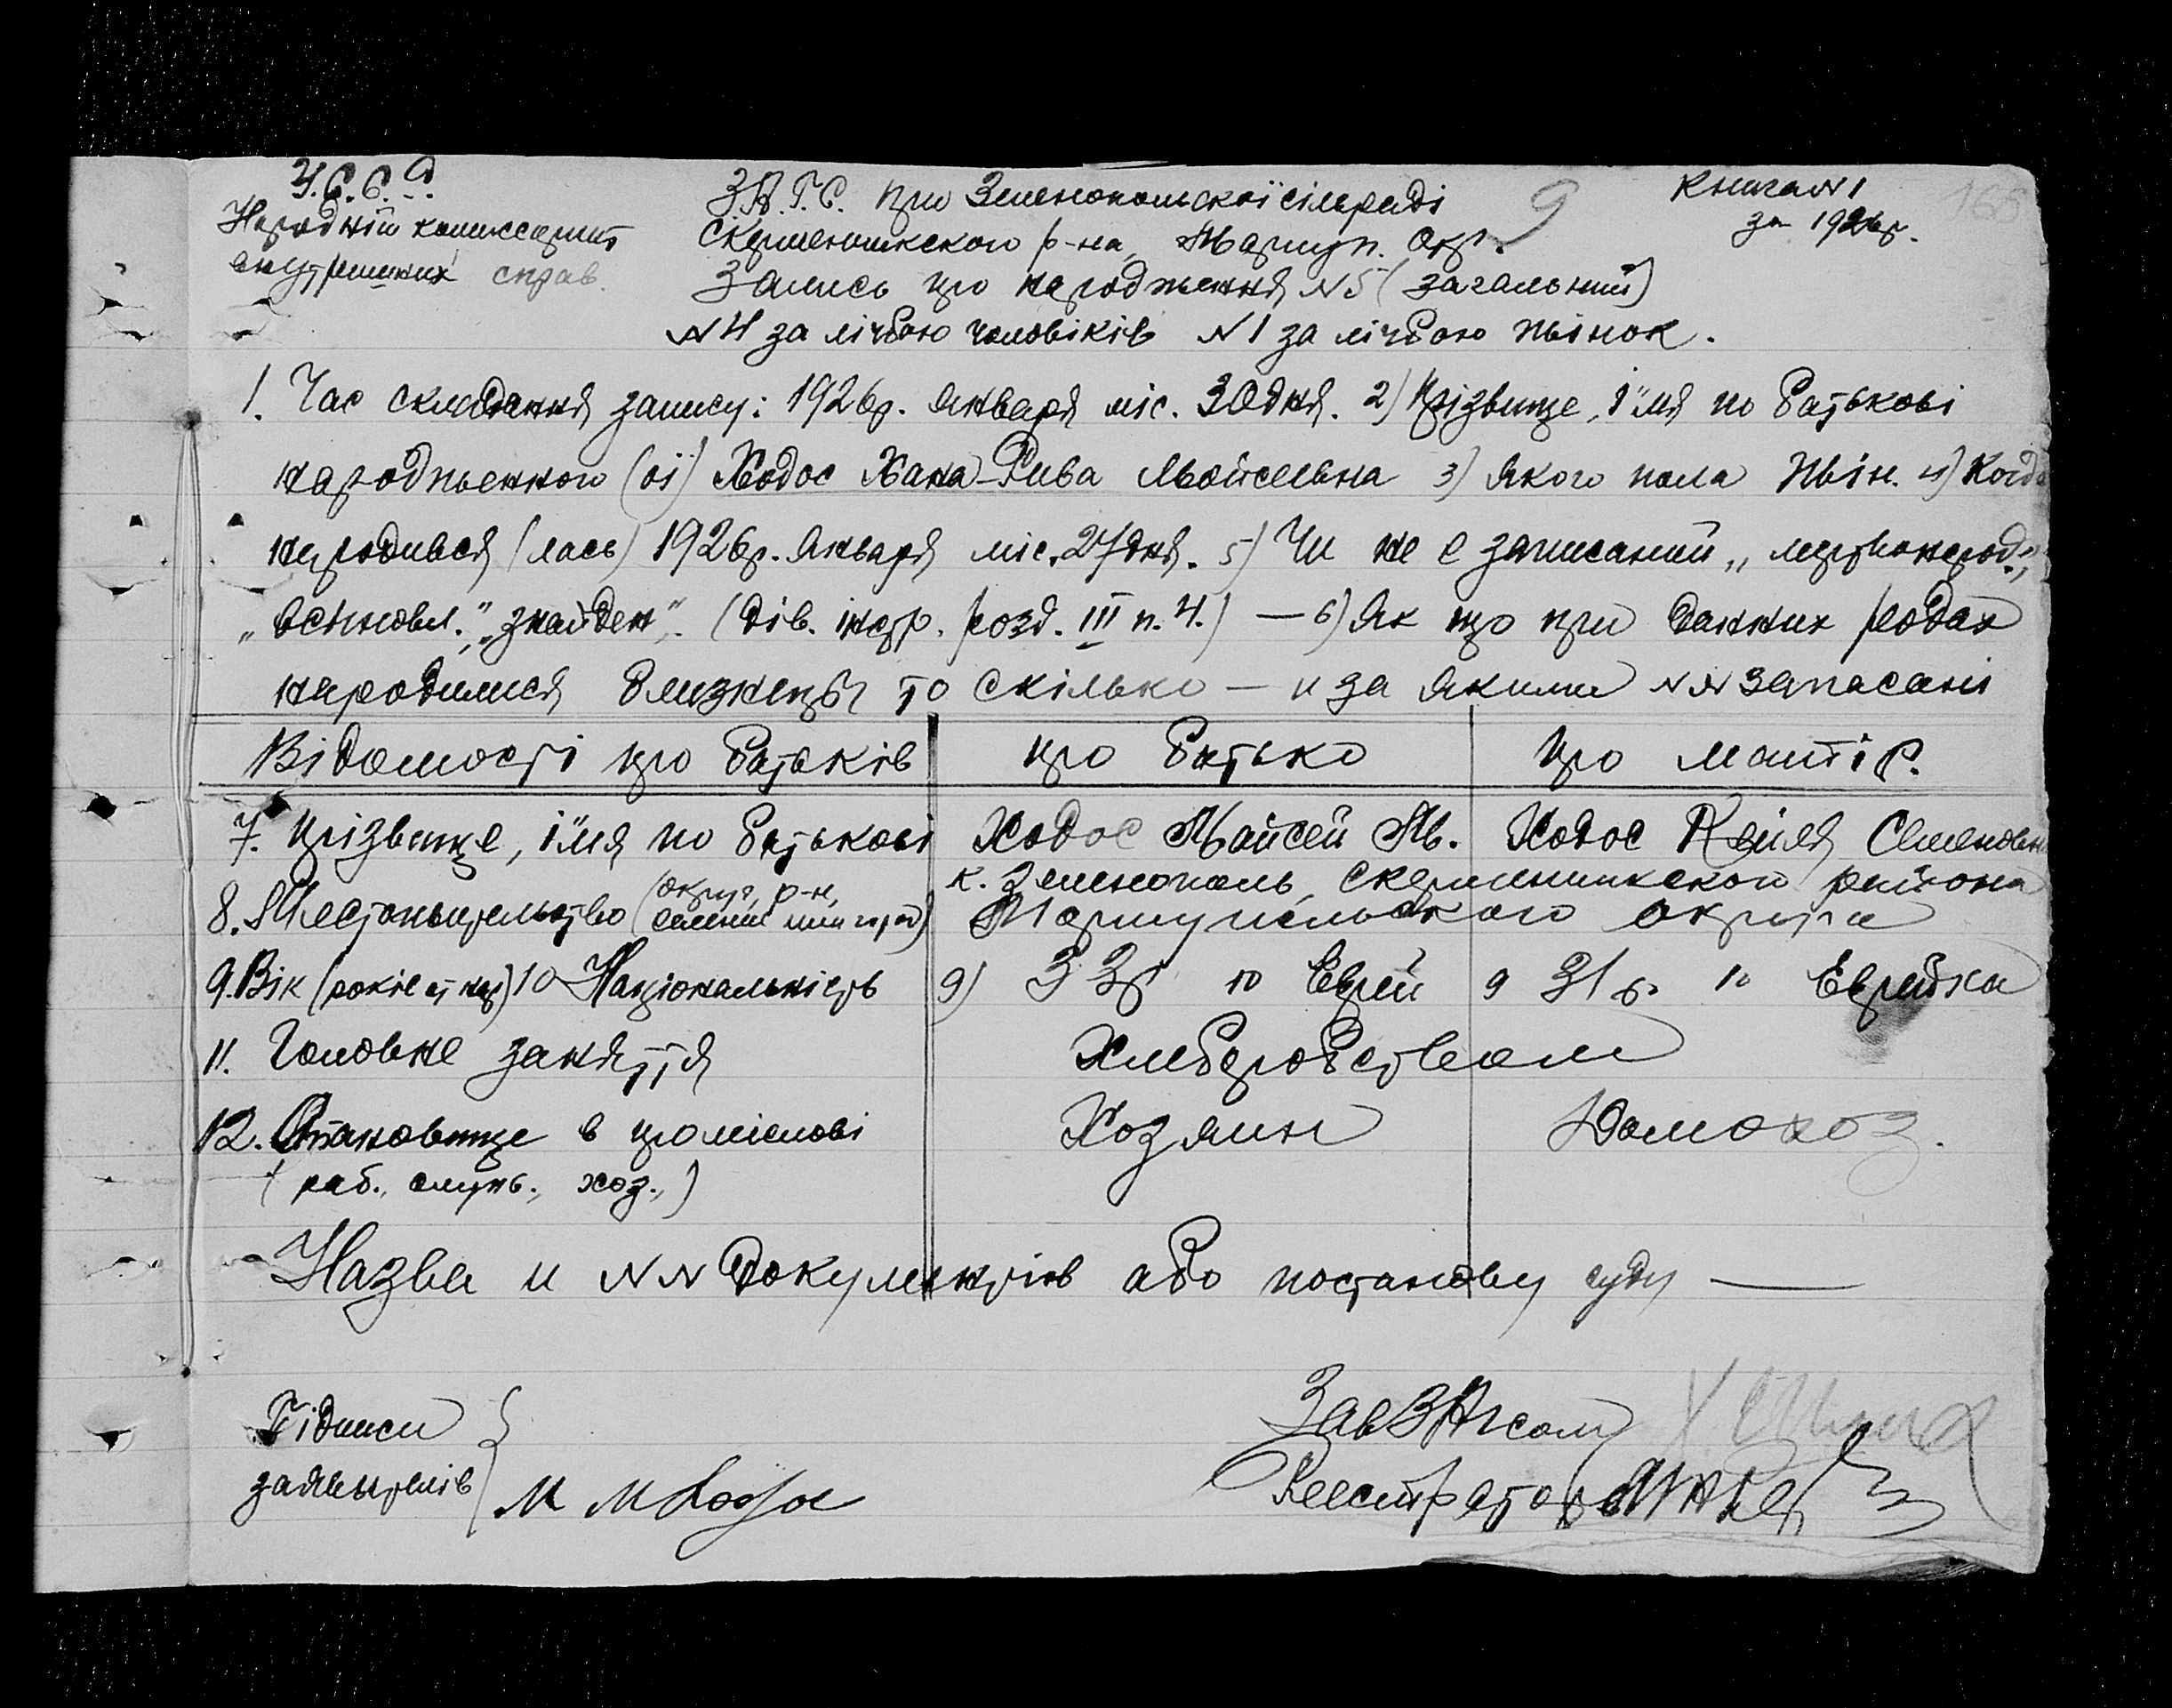 У.С.С.Р.
Народній комиссариат
внутрішних справ.
З.А.Г.С. при Зеленопольскої сільраді
Скерменшикского р-на, Мариуп. Окр.
9
Книга №1
за 1926р.
165
Запись про народження №5 (загальний)
№4 за лічбою чоловіків №1 за лічбою жінок.
1. Час складання запису: 1926р. Января міс. 30 дня. 2) Прізвище, імя по батькові
народженного (ої) Ходос Хана-Рива Мойсеевна 3) Якого пола Жін. 4) Когда
народився (лась) 1926р. Января міс. 27 дня. 5) Чи не е записаний „мертвонарод.",
„всиновл.", „знайден". (дів. інстр. розд. III п. 4.) — 6) Як що при данних родах
народилися близнецы то скілько — и за якими №№ записані
Відомості про батьків
про батько
про матір.
7. Прізвище, імя по батькові
Ходос Мойсей М.
Ходос Кейля Семеновна
8. Местожительство (округ, р-н, селение или город)
к. Зеленополь, Скерменшикского района
Мариупольского округа
9. Вік (років от нар) 10 Національність
9) 33р 10 Еврей
9 31 г. 10 Еврейка
11. Головне заняття
Хлеборобством
12. Становище в промислові
(раб., служ., хоз.,)
Хозяин
Домохоз.
Назва и №№ документів або постанову суду —
Підписи
заявителів
М М Ходос
ЗавЗАГсом
Реестратор